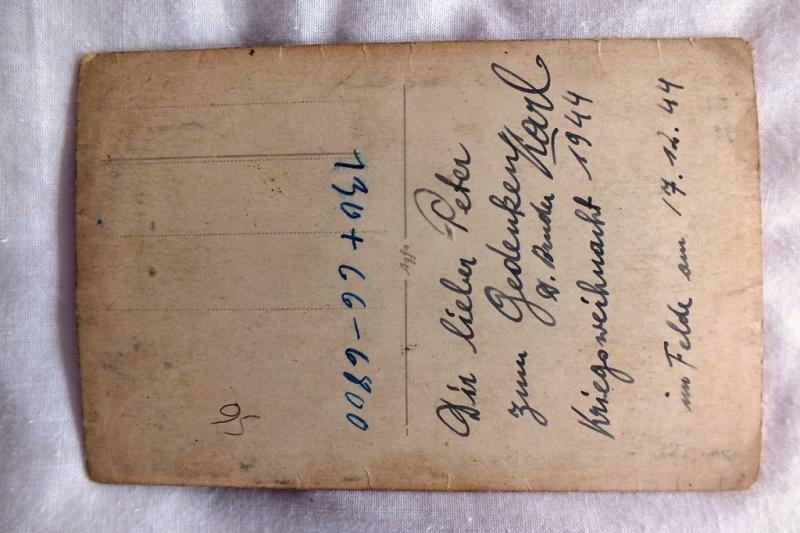 Dir lieber Peter
zum Gedenken
D. Bruder Karl
Kriegsweihnacht 1944
im Felde am 17.12.44
Agfa